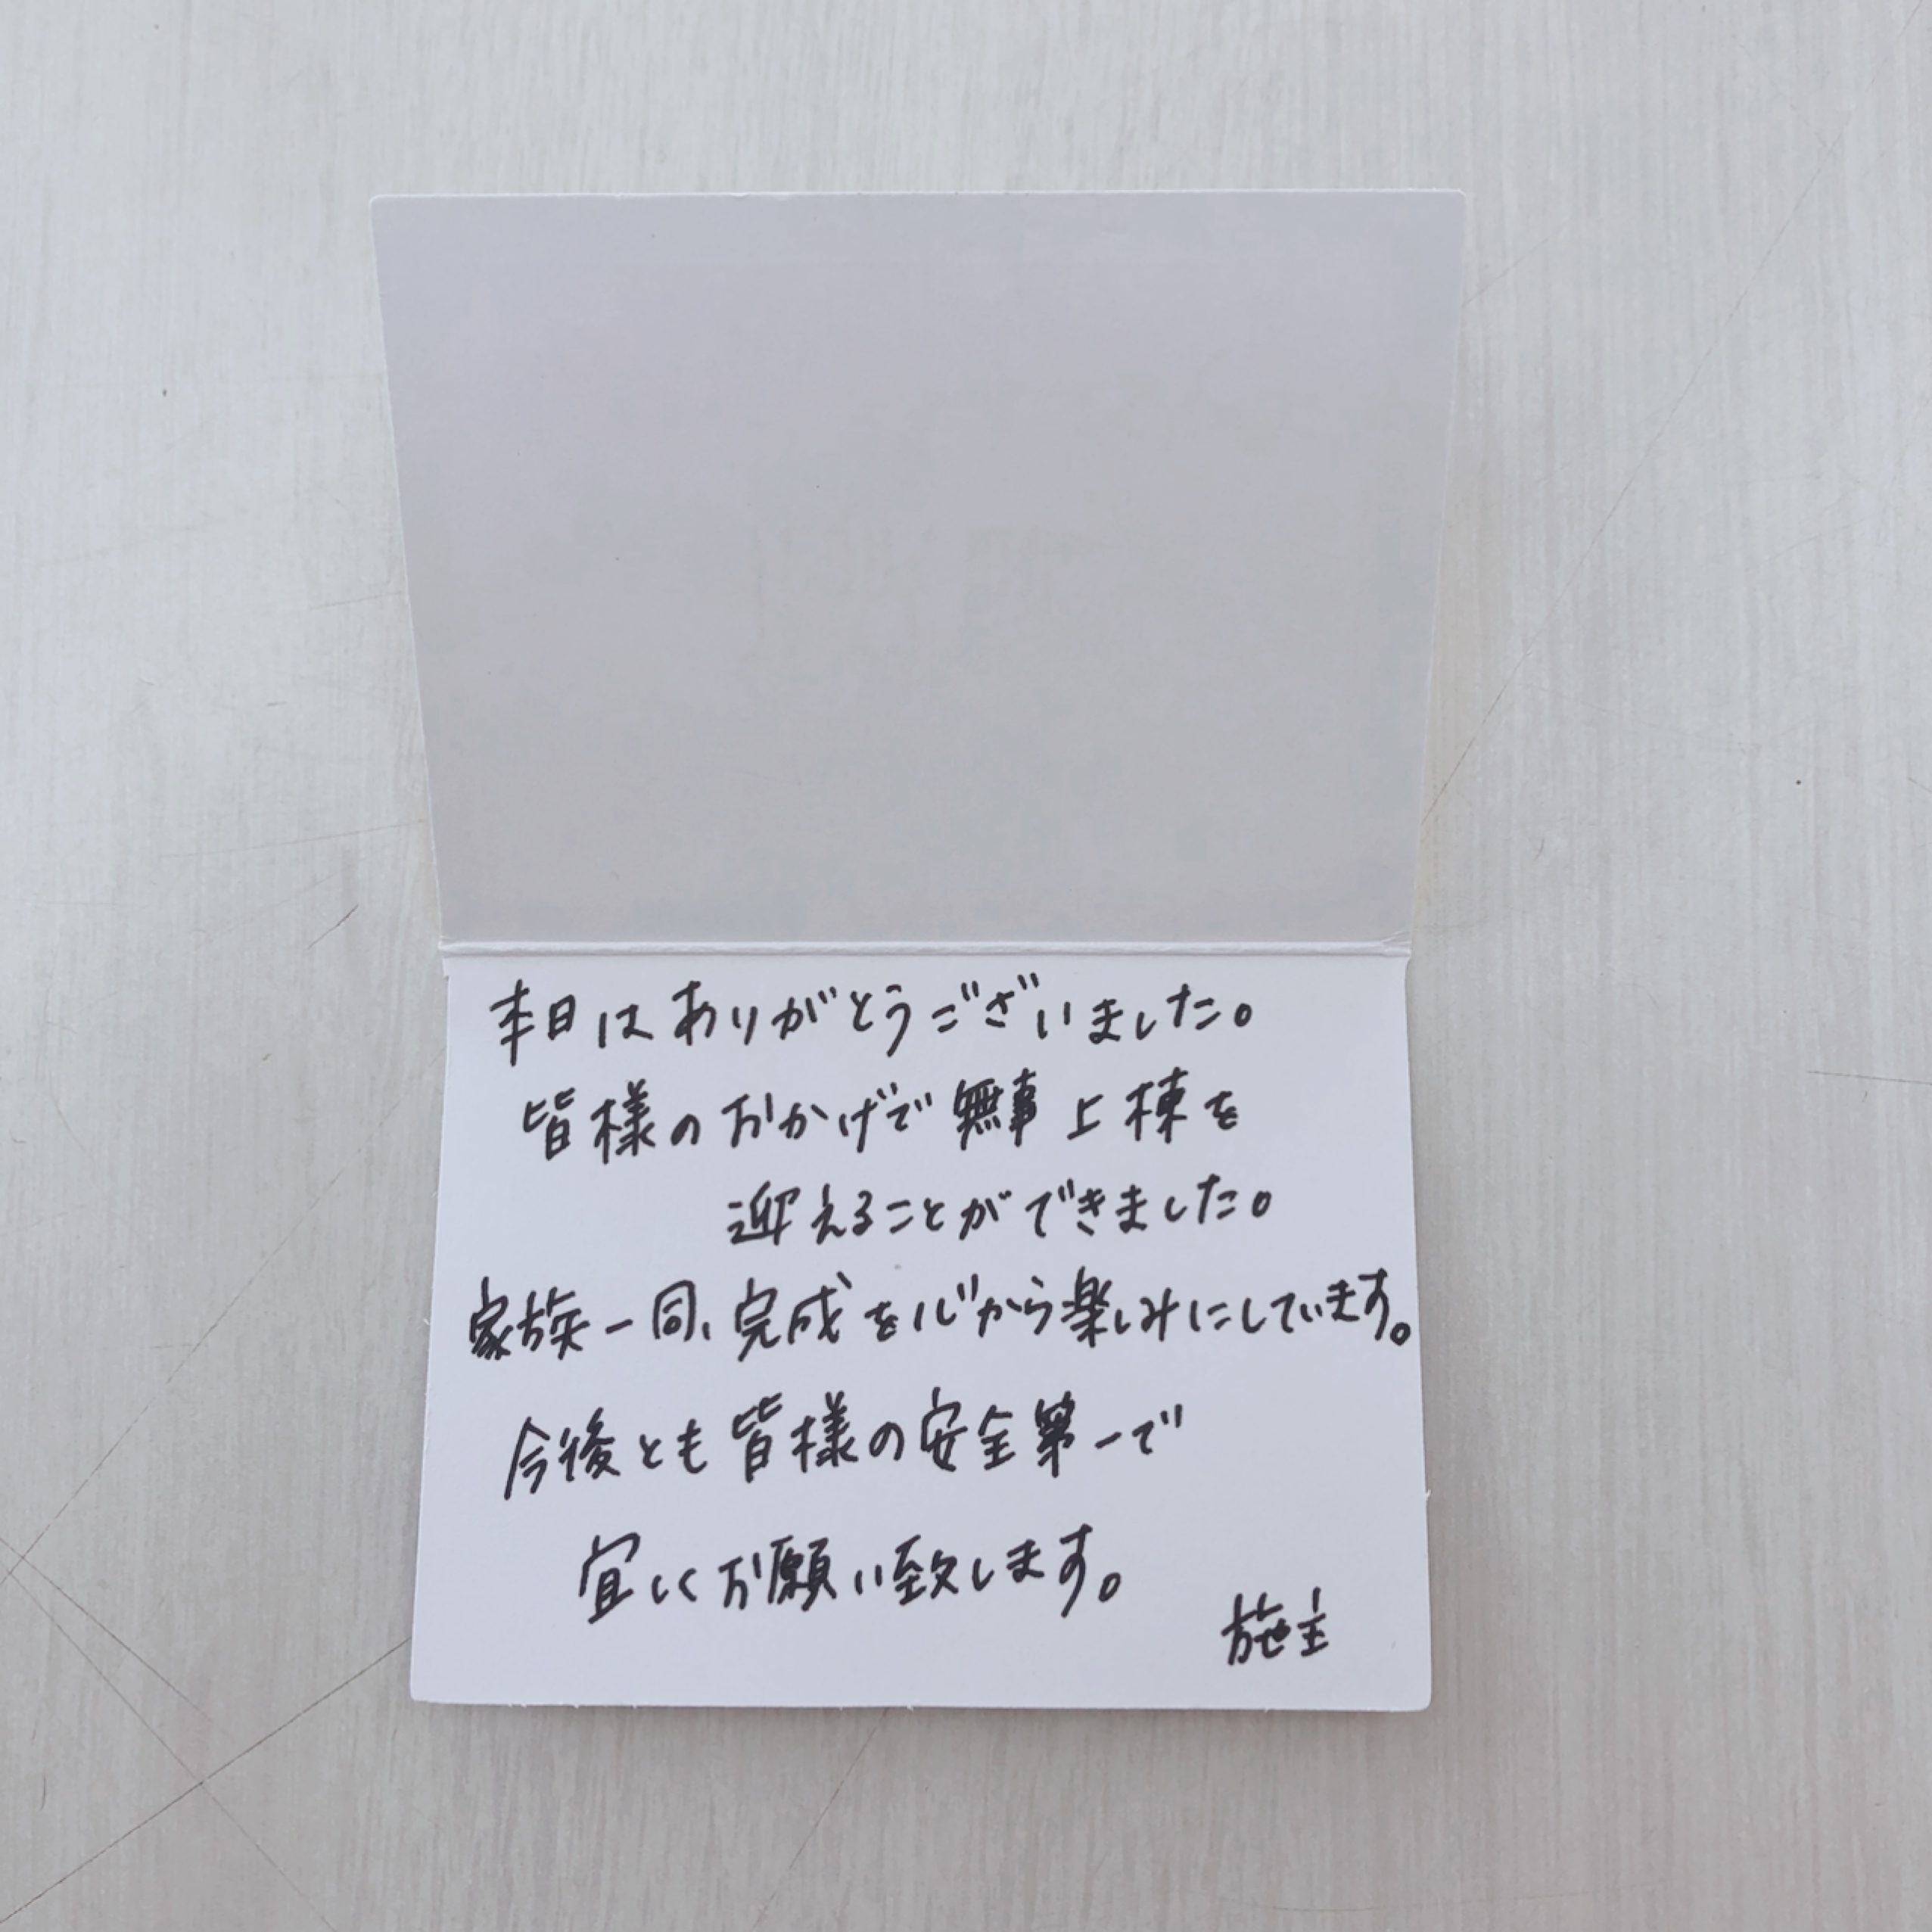 本日はありがとうございました。
皆様のおかげで無事上棟を
迎えることができました。
家族一同、完成を心から楽しみにしています。
今後とも皆様の安全第一で
宜しくお願い致します。
施主